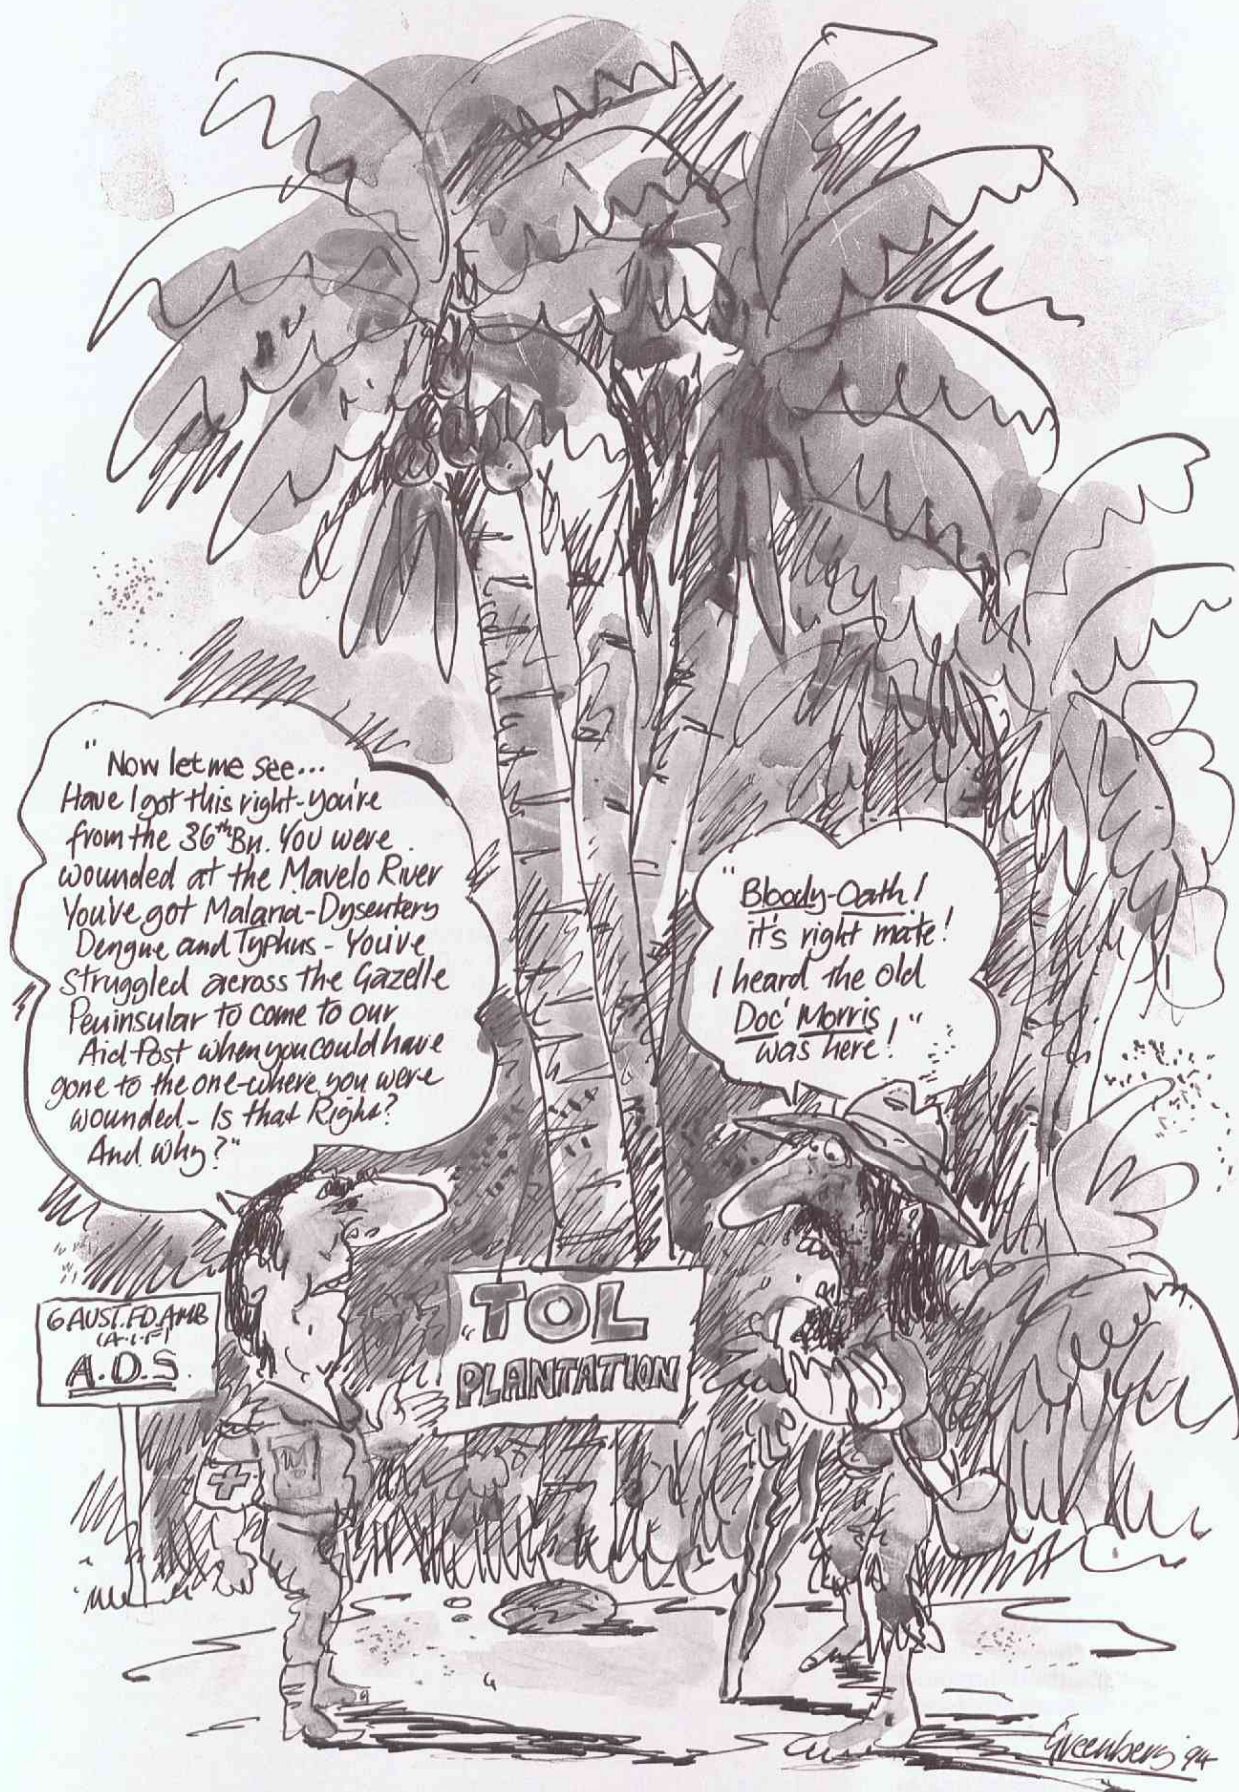 "Now let me see...
Have I got this right-you're
from the 36th Bn. You were
wounded at the Mavelo River
You've got Malaria-Dysentery
Dengue and Typhus - You've
struggled across the Gazelle
Peninsular to come to our
Aid-Post when you could have
gone to the one-where you were
wounded - Is that Right?
And why?"
"Bloody-Oath!
it's right mate!
I heard the old
Doc' Morris
was here!"
6 AUST. FD. AMB
(A.I.F)
A.D.S.
"TOL
PLANTATION
Greenberg 94